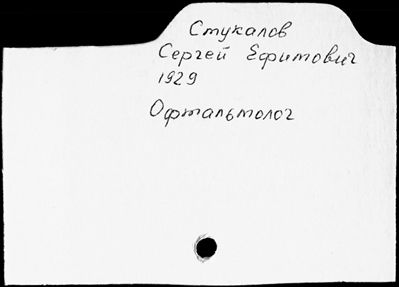 Стукалов
Сергей Ефимович
1929
Офтальмолог